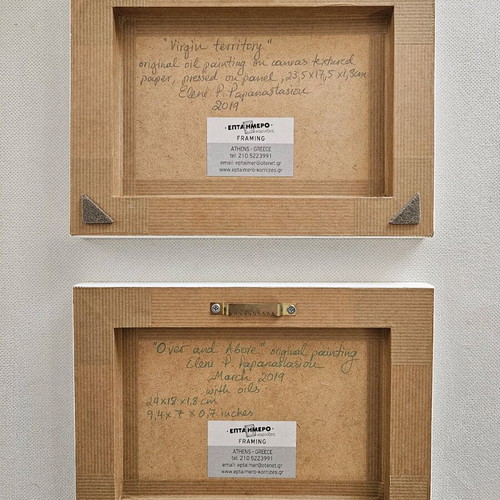 "Virgin territory"
original oil painting on canvas textured
paper, pressed on panel, 23,5x17,5 x1,8cm
Eleni P. Papanastasiou
2019
·ΕΠΤΑΗΜΕΡΟ·
FRAMING
ATHENS - GREECE
tel: 210 5223991
email: eptaimer@otenet.gr
www.eptaimero-kornizes.gr
"Over and Above" original painting
Eleni P. Papanastasiou
March 2019
with oils
24x18x1,8 cm
9,4x 7 x 0,7 inches
·ΕΠΤΑΗΜΕΡΟ·
FRAMING
ATHENS - GREECE
tel: 210 5223991
email: eptaimer@otenet.gr
www.eptaimero-kornizes.gr